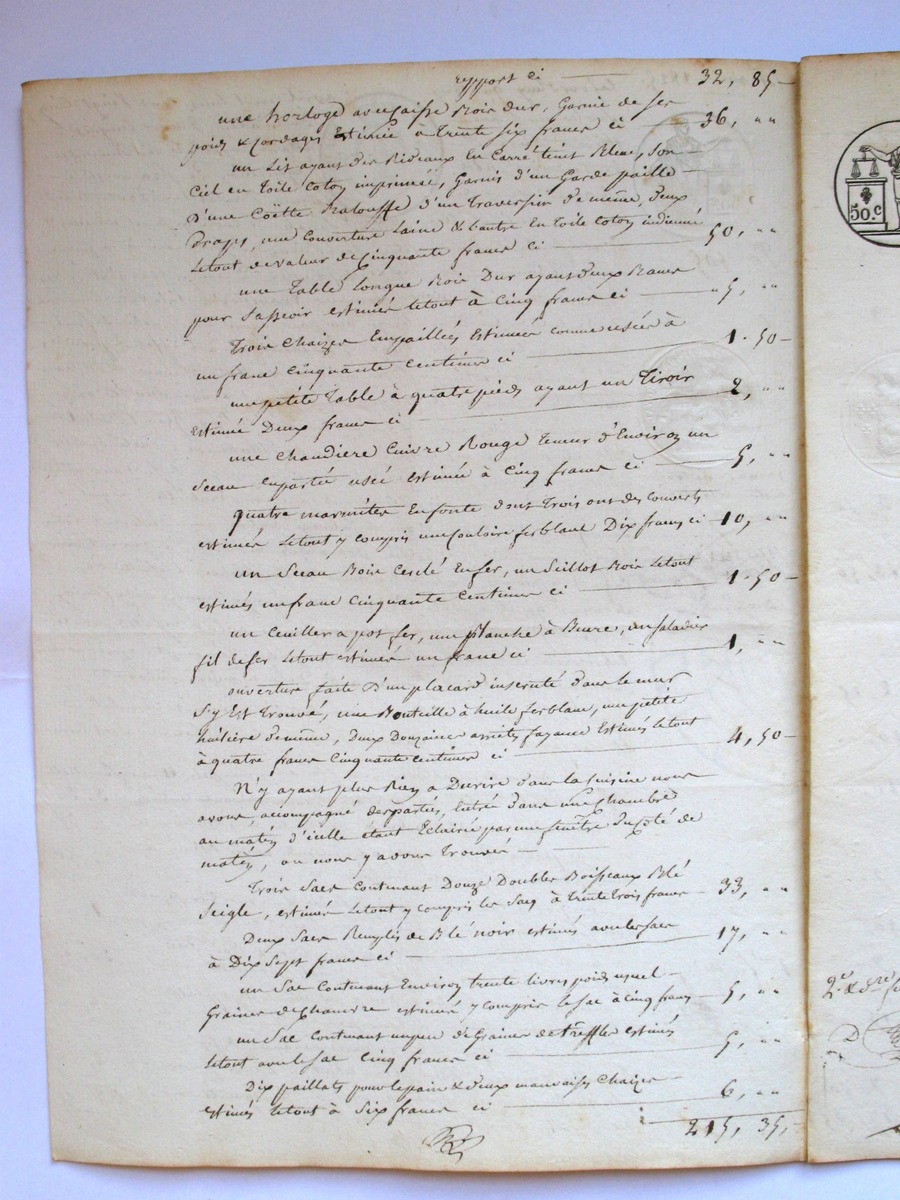 report ci — 32, 85
une horloge avec caisse Bois dur, Garnie de ses
poids & cordages Estimée à trente six francs ci — 36, ""
un Lit ayant des Rideaux en carré teint Bleue, Son
Ciel en toile Coton imprimeé, Garnis d'un Garde paille
D'une Coëtte Balouffe d'un traversin de même, deux
draps, une couverture laine & l'autre en toile coton indienné
Letout de valeur de Cinquante francs ci — 50, ""
une Table longue Bois Dur ayant deux Bancs
pour Sasseoir estimés letout à Cinq francs ci — "5, ""
Trois Chaizes Empailleés Estimeés comme usées à
un franc Cinquante Centimes ci — 1.50
une petite Table à quatre pieds ayant un Tiroir
Estimée Deux francs ci — 2, ""
une chaudiere Cuivre Rouge teneur d'Environ un
Sceau en partie usée estimée à Cinq francs ci — 5, ""
quatre marmites En fonte dont Trois ont des couverts
estimés Letout y compris une Couloire fer blanc Dix francs ci 10, ""
un Sceau Bois Cerclé En fer, un Seillot Bois Letout
estimés un franc Cinquante Centimes ci — 1.50
un Ceuiller a pot fer, une planche à Beure, un saladier
fil de fer Letout estimés un franc ci — 1, ""
ouverture faite D'un placard inscruté dans le mur
S'y Est trouvé, une Bouteille à huile fer blanc, une petite
huilière de même, Deux Douzaines assiettes fayance Estimés Letout
à quatre francs Cinquante centimes ci — 4, 50
N'y ayant plus Rien a Décrire dans la Cuisine nous
avons, accompagné des parties, Entrée dans une Chambre
au matin d'icelle étant Eclairée par une fenêtre Du côté de
matin, où nous y avons Trouvés —
Trois Sacs contenant Douze Doubles Boisseaux Blé
Seigle, estimés Letout y compris les Sacs à trente trois francs — 33, ""
Deux Sacs Remplis de Blé noir estimés avec les sacs
à Dix Sept francs ci — 17, ""
un Sac Contenant Environ trente livres poids usuel
Graines de Chanvre estimé y compris le sac à cinq francs — 5, ""
un Sac Contenant un peu de Graines de trèffles estimés
Letout avec le sac Cinq francs ci — 5, ""
Dix paillats pour le pain & deux mauvaises Chaizes
estimés letout à Six francs ci — 6, ""
215, 35
50.c